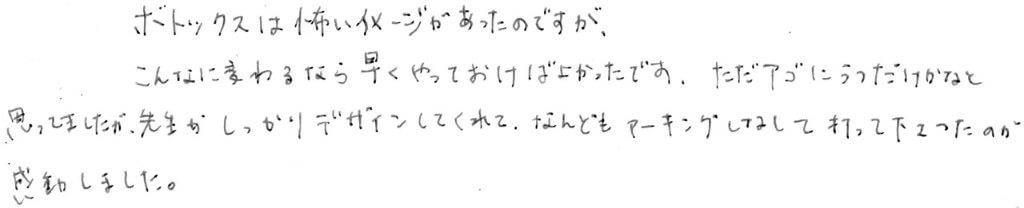 ボトックスは怖いイメージがあったのですが、
こんなに変わるなら早くやっておけばよかったです。ただアゴにうつだけかなと
思ってましたが、先生がしっかりデザインしてくれて、なんどもマーキングしなおして打って下さったのが
感動しました。